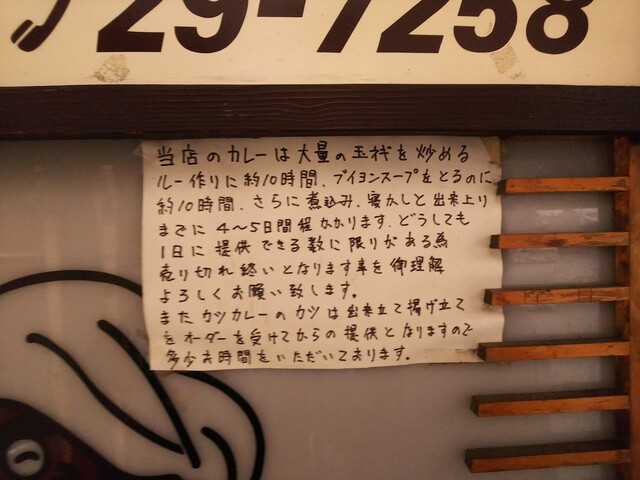 29-7258
当店のカレーは大量の玉ネギを炒める
ルー作りに約10時間、ブイヨンスープをとるのに
約10時間、さらに煮込み、寝かしと出来上り
までに4〜5日間程かかります、どうしても
1日に提供できる数に限りがある為
売り切れ終いとなります事を御理解
よろしくお願い致します。
またカツカレーのカツは出来立て揚げ立て
をオーダーを受けてからの提供となりますので
多少お時間をいただいております。